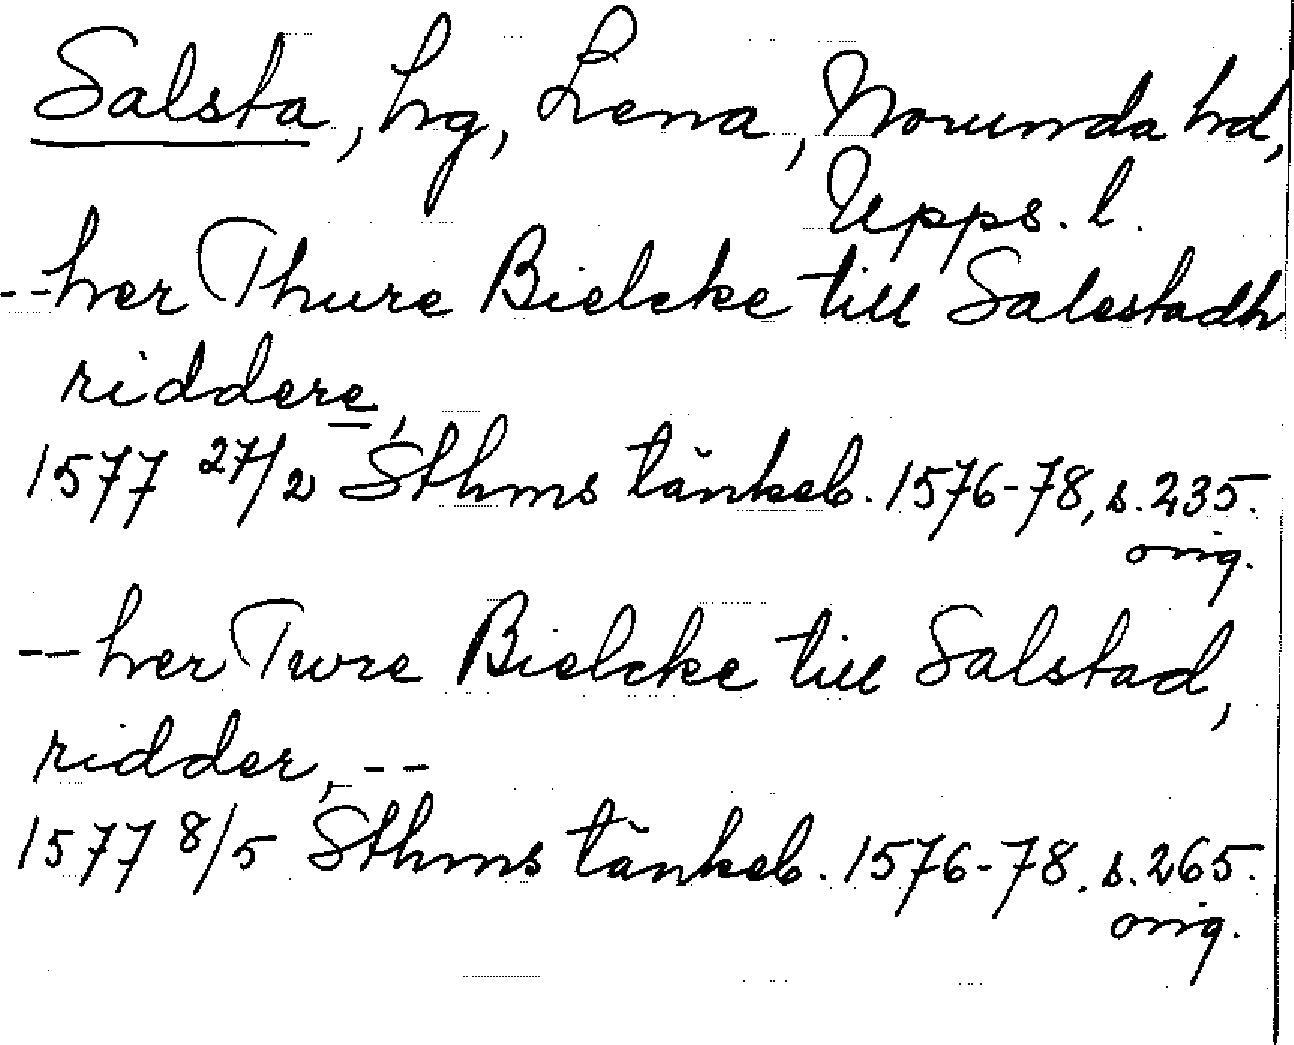 Salsta, hg, Lena, Norunda hd,
Upps. l.
-- her Thure Bielcke till Salestadh
riddere,
1577 27/2 Sthms tänkeb. 1576-78, s. 235.
orig.
-- her Twre Bielcke till Salstad,
ridder, --
1577 8/5 Sthms tänkeb. 1576-78. s. 265.
orig.